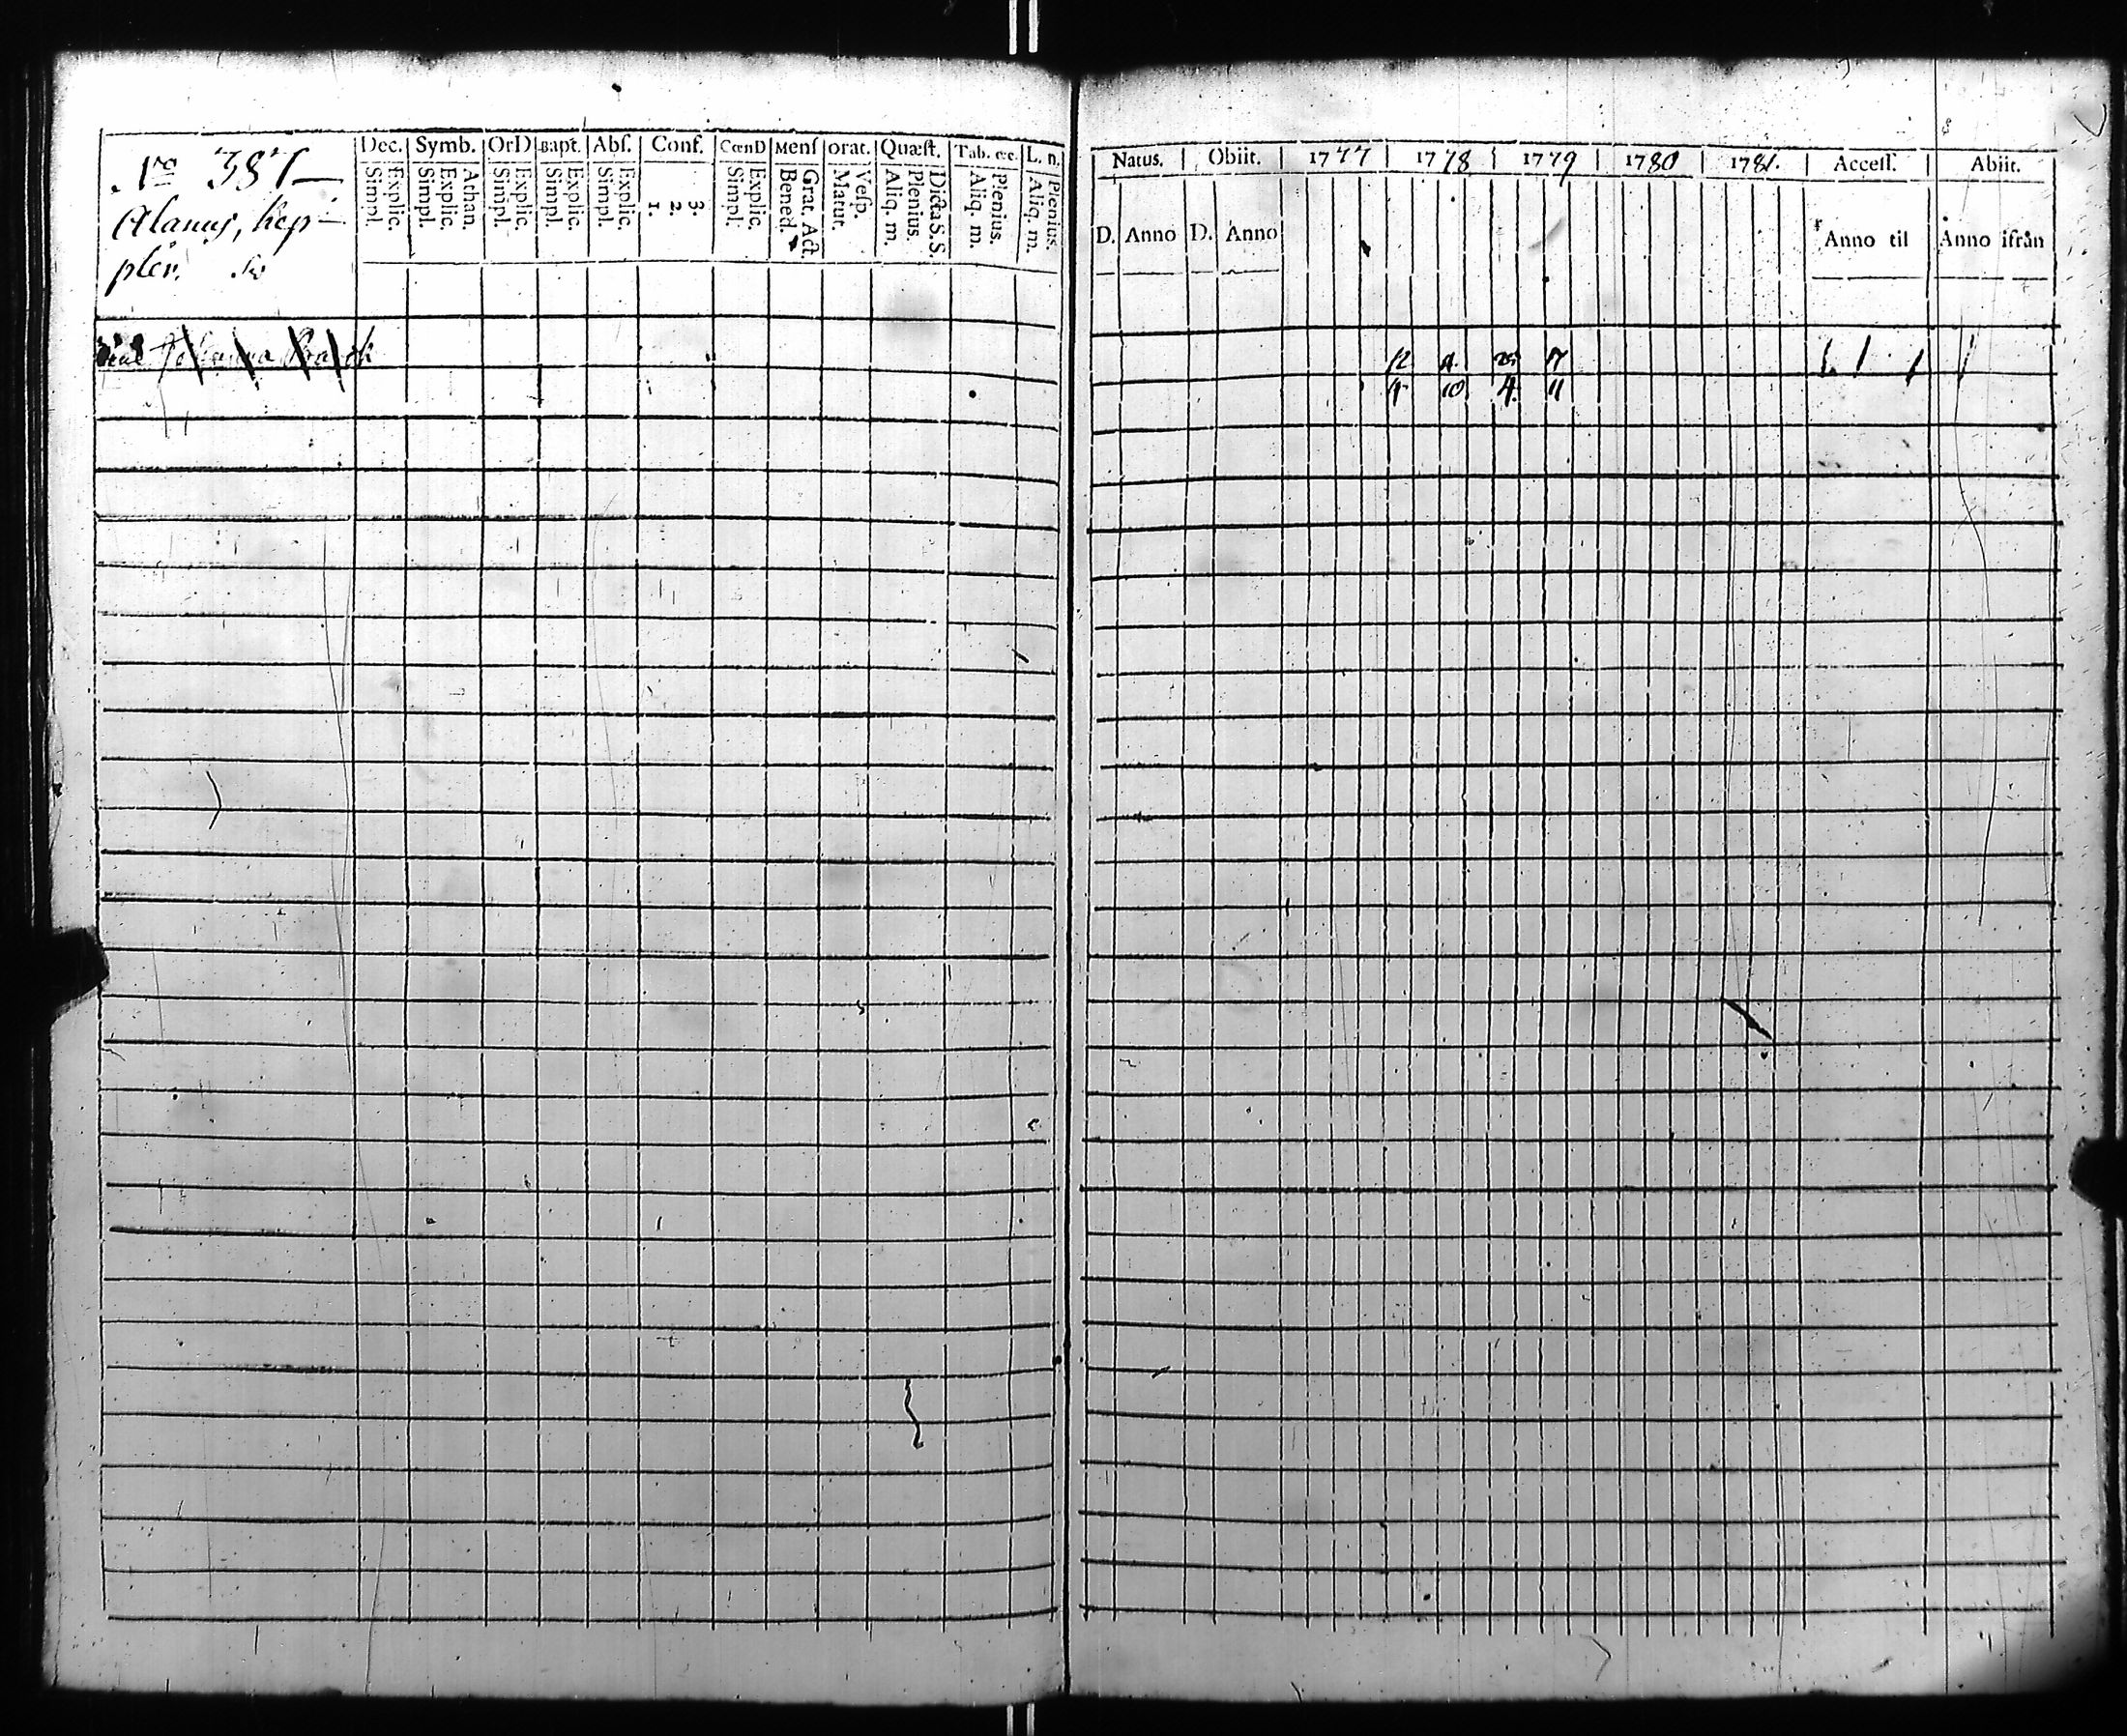 No 387
Alanus, kep-
pler.
Dec. Symb. OrD Bapt. Abſ. Conf. CœnD Menſ orat. Quæſt. Tab. œc. L. n.
Simpl. Explic. Simpl. Explic. Athan. Simpl. Explic. Simpl. Explic. Simpl. Explic. 1. 2. 3. Simpl. Explic. Bened. Grat. Act. Matut. Veſp. Aliq. m. Plenius. Dicta S.S. Aliq. m. Plenius. Aliq. m. Plenius.
Johanna
Natus. Obiit. 1777 1778 1779 1780 1781. Acceſſ. Abiit.
D. Anno D. Anno Anno til Anno ifrån
12 4. 25 7
4 10 4. 11